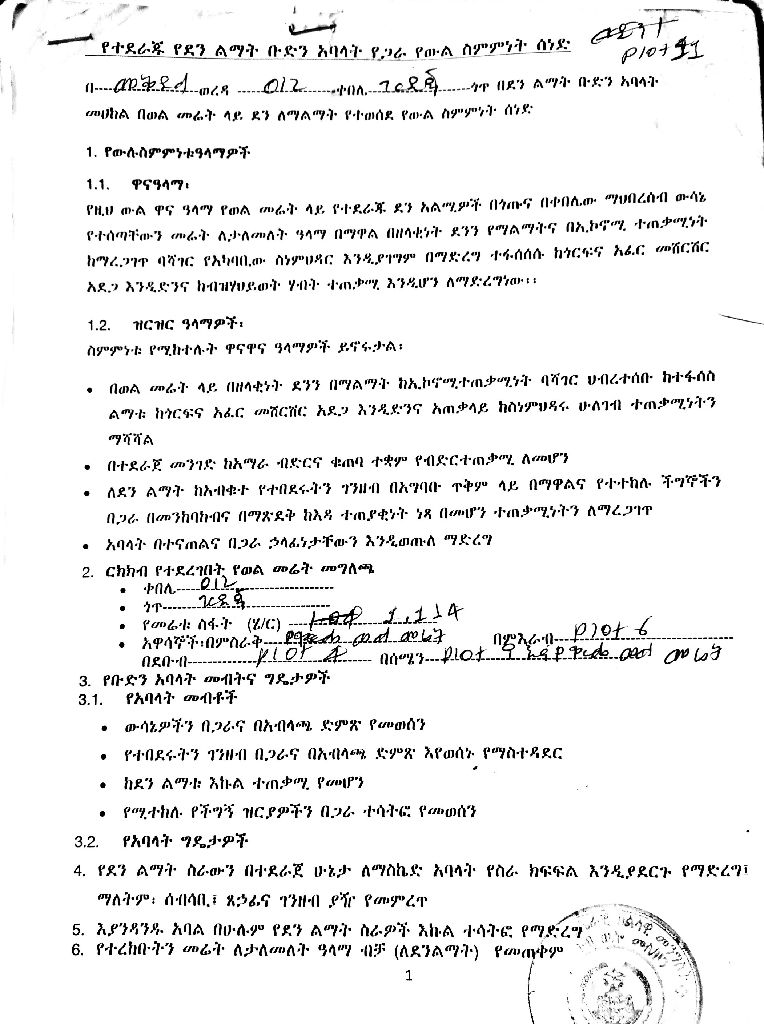 የተደራጁ የደን ልማት ቡድን አባላት የጋራ የውል ስምምነት ሰነድ
Plot 11
በ መቅደላ ወረዳ 012 ቀበሌ ጎጥ በደን ልማት ቡድን አባላት
መሀከል በወል መሬት ላይ ደን ለማልማት የተወሰደ የውል ስምምነት ሰነድ
1. የውሉስምምነቱዓላማዎች
1.1. ዋናዓላማ፡
የዚህ ውል ዋና ዓላማ የወል መሬት ላይ የተደራጁ ደን አልሚዎች በጎጡና በቀበሌው ማህበረሰብ ውሳኔ
የተሰጣቸውን መሬት ለታለመለት ዓላማ በማዋል በዘላቂነት ደንን የማልማትና በኢኮኖሚ ተጠቃሚነት
ከማረጋገጥ ባሻገር የአካባቢው ስነምህዳር እንዲያገግም በማድረግ ተፋሰሰሱ ከጎርፍና አፈር መሸርሸር
አደጋ እንዲድንና ከብዝሃህይወት ሃብት ተጠቃሚ እንዲሆን ለማድረግነው፡፡
1.2. ዝርዝር ዓላማዎች፡
ስምምነቱ የሚከተሉት ዋናዋና ዓላማዎች ይኖሩታል፡
• በወል መሬት ላይ በዘላቂነት ደንን በማልማት ከኢኮኖሚተጠቃሚነት ባሻገር ህብረተሰቡ ከተፋሰስ
ልማቱ ከጎርፍና አፈር መሸርሸር አደጋ እንዲድንና አጠቃላይ ከስነምህዳሩ ሁለገብ ተጠቃሚነትን
ማሻሻል
• በተደራጀ መንገድ ከአማራ ብድርና ቁጠባ ተቋም የብድርተጠቃሚ ለመሆን
• ለደን ልማት ከአብቁተ የተበደሩትን ገንዘብ በአግባቡ ጥቅም ላይ በማዋልና የተተከሉ ችግኞችን
በጋራ በመንከባከብና በማጽደቅ ከእዳ ተጠያቂነት ነጻ በመሆን ተጠቃሚነትን ለማረጋገጥ
• አባላት በተናጠልና በጋራ ኃላፊነታቸውን እንዲወጡለ ማድረግ
2. ርክክብ የተደረገበት የወል መሬት መግለጫ
• ቀበሌ 012
• ጎጥ
• የመሬቱ ስፋት (ሄ/ር) 1.114
• አዋሳኞች፡በምስራቅ መሬት በምእራብ Plot 6
በደቡብ Plot 4 በሰሜን Plot መሬት
3. የቡድን አባላት መብትና ግዴታዎች
3.1. የአባላት መብቶች
• ውሳኔዎችን በጋራና በአብላጫ ድምጽ የመወሰን
• የተበደሩትን ገንዘብ በጋራና በአብላጫ ድምጽ እየወሰኑ የማስተዳደር
• ከደን ልማቱ እኩል ተጠቃሚ የመሆን
• የሚተከሉ የችግኝ ዝርያዎችን በጋራ ተሳትፎ የመወሰን
3.2. የአባላት ግዴታዎች
4. የደን ልማት ስራውን በተደራጀ ሁኔታ ለማስኬድ አባላት የስራ ክፍፍል እንዲያደርጉ የማድረግ፤
ማለትም፡ ሰብሳቢ፤ ጸኃፊና ገንዘብ ያዥ የመምረጥ
5. እያንዳንዱ አባል በሁሉም የደን ልማት ስራዎች እኩል ተሳትፎ የማድረግ
6. የተረከቡትን መሬት ለታለመለት ዓላማ ብቻ (ለደንልማት) የመጠቀም
1